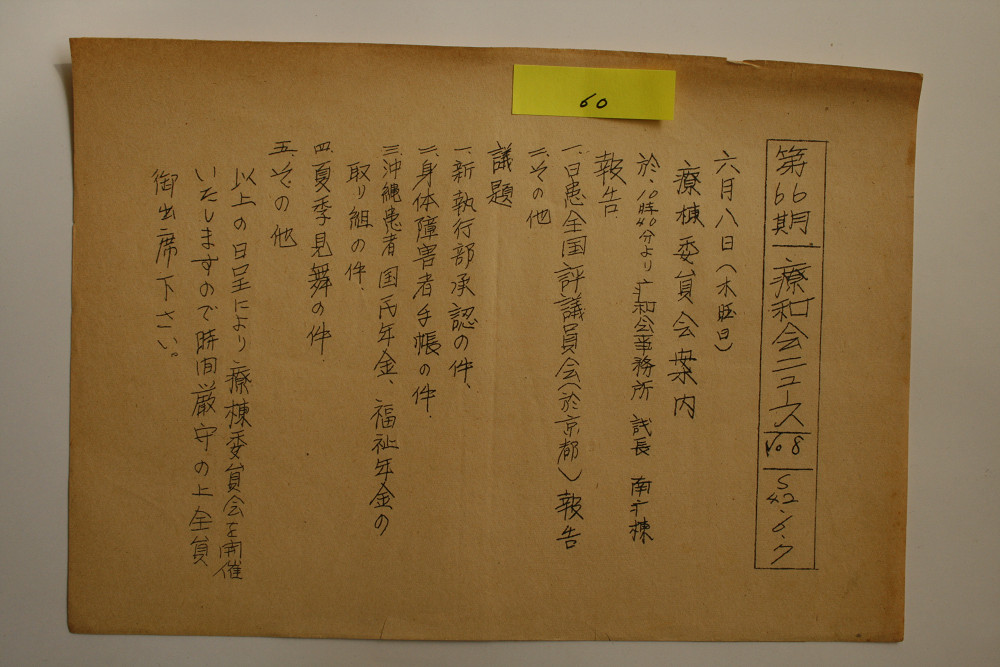 60
第66期 療和会ニュース No8 S42.6.7
六月八日(木曜日)
療棟委員会案内
於.10時40分より 疒和会事務所 議長 南疒棟
報告
一、日患全国評議員会(於京都)報告
二、その他
議題
一、新執行部承認の件、
二、身体障害者手帳の件.
三、沖縄患者国民年金、福祉年金の
取り組の件.
四、夏季見舞の件.
五、その他
以上の日呈により療棟委員会を開催
いたしますので時間厳守の上全員
御出席下さい。